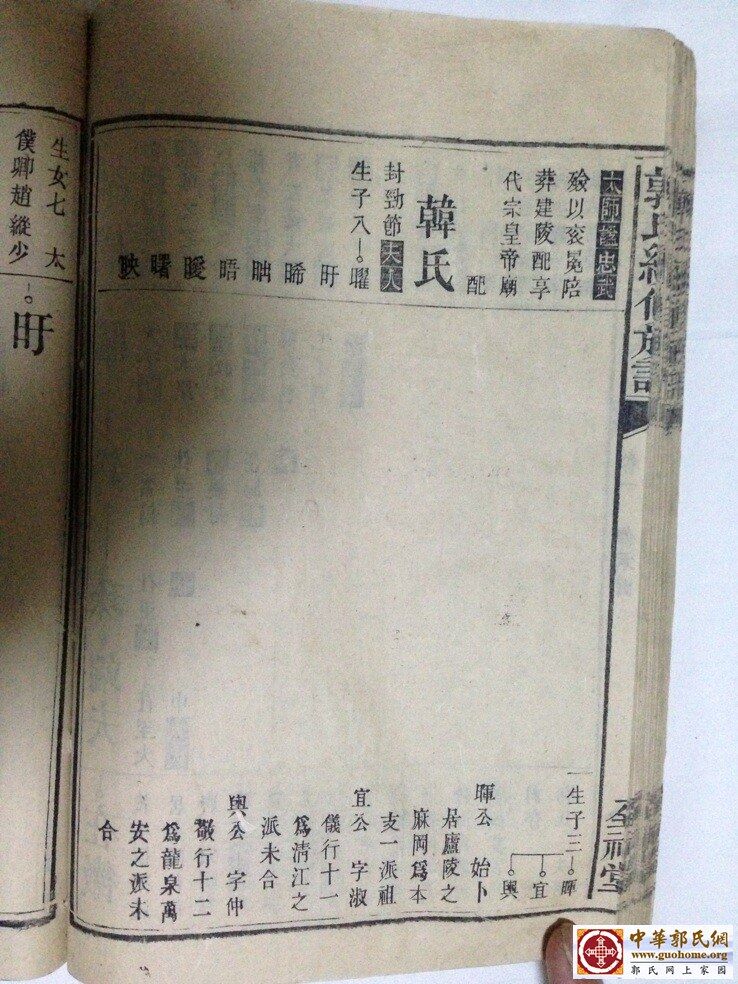 郭氏續修族譜
太師諡忠武
殮以袞冕陪
葬建陵配享
代宗皇帝廟
配
韓氏
封勁節夫人
生子八曜
旰
晞
朏
晤
曖
曙
映
一生子三暉
宜
輿
暉公 始卜
居廬陵之
麻岡爲本
支一派祖
宜公 字淑
儀行十一
爲清江之
派未合
輿公 字仲
行十二
爲龍泉萬
安之派未
合
生女七 太
僕卿趙縱少
旰
中華郭氏網
www.guohome.org
郭氏网上家园